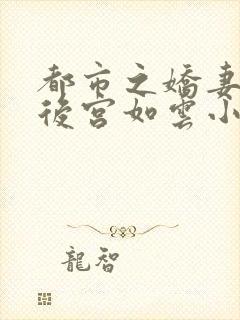 都市之嬌妻
後宮如雲小
龍智